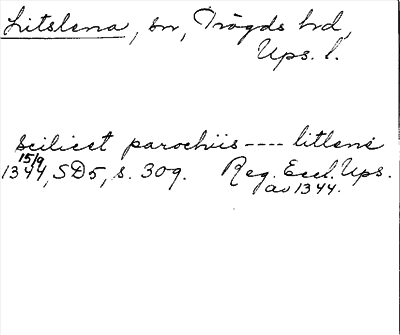 Litslena, sn, Trögds hd,
Ups. l.
scilicet parochiis ---- litlené
15/9
1344, SD5, s. 309. Reg. Eccl. Ups.
av 1344.